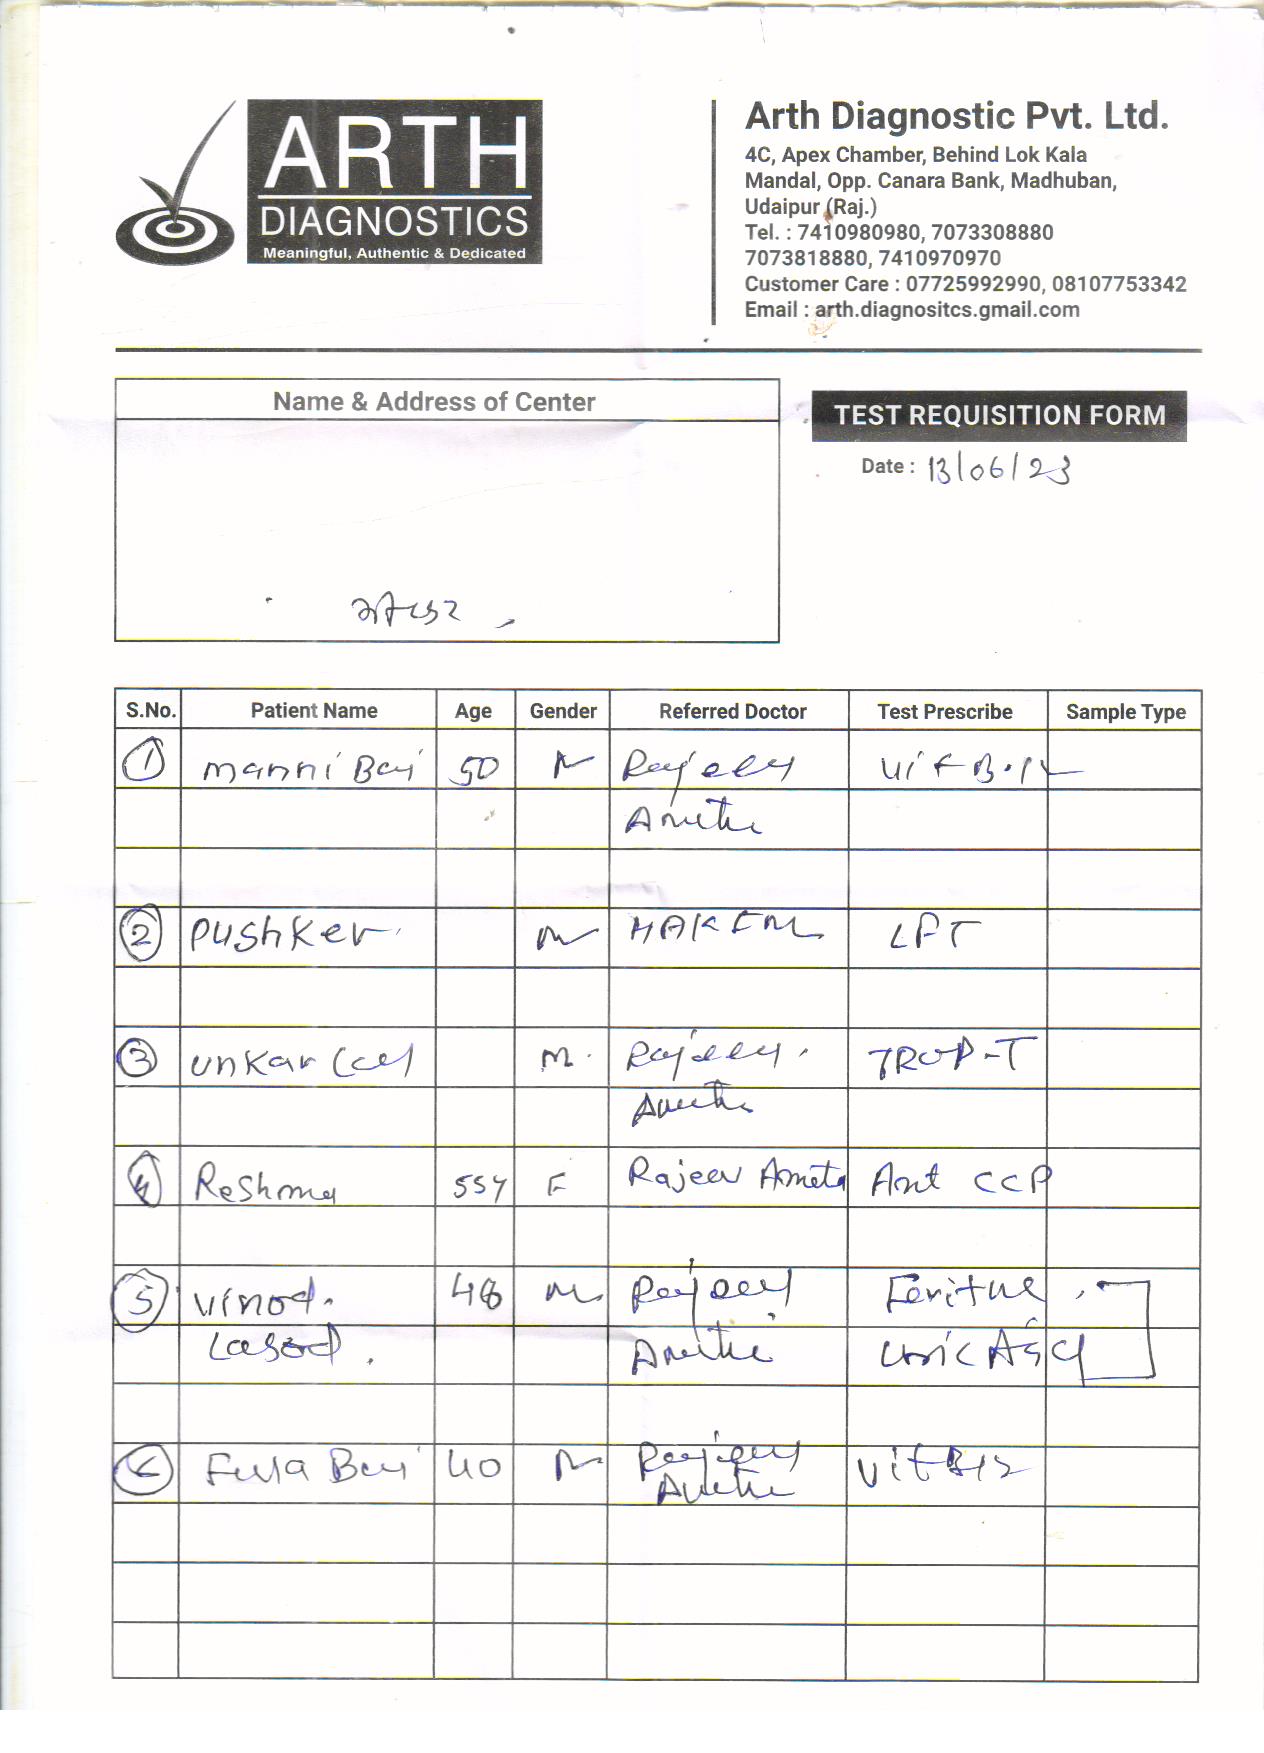 ARTH
DIAGNOSTICS
Meaningful, Authentic & Dedicated
Arth Diagnostic Pvt. Ltd.
4C, Apex Chamber, Behind Lok Kala
Mandal, Opp. Canara Bank, Madhuban,
Udaipur (Raj.)
Tel. : 7410980980, 7073308880
7073818880, 7410970970
Customer Care : 07725992990, 08107753342
Email : arth.diagnositcs.gmail.com
Name & Address of Center
TEST REQUISITION FORM
Date : 13/06/23
S.No. Patient Name Age Gender Referred Doctor Test Prescribe Sample Type
1 Manni Bai 50 M Rajeev Vit B.12
Ameta
2 Pushker M HAKIM LFT
3 Unkar Lal M. Rajeev. TROP-T
Ameta
4 Reshma 55Y F Rajeev Ameta Ant CCP
5 Vinod. 48 M Rajeev
Ameta Uric
6 Bai 40 M Rajeev Vit B12
Ameta